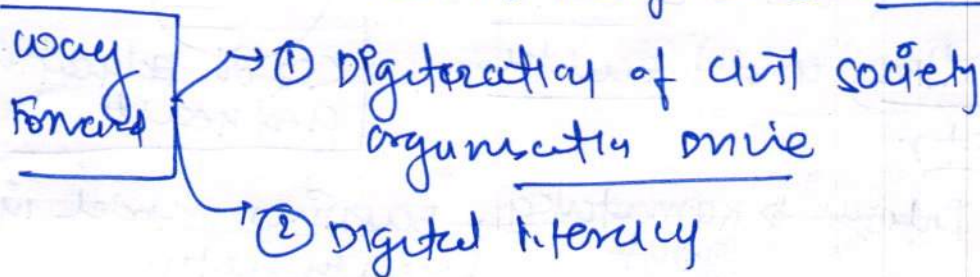 Way Forward
→ ① Digitization of civil society
organisation drive
→ ② Digital literacy